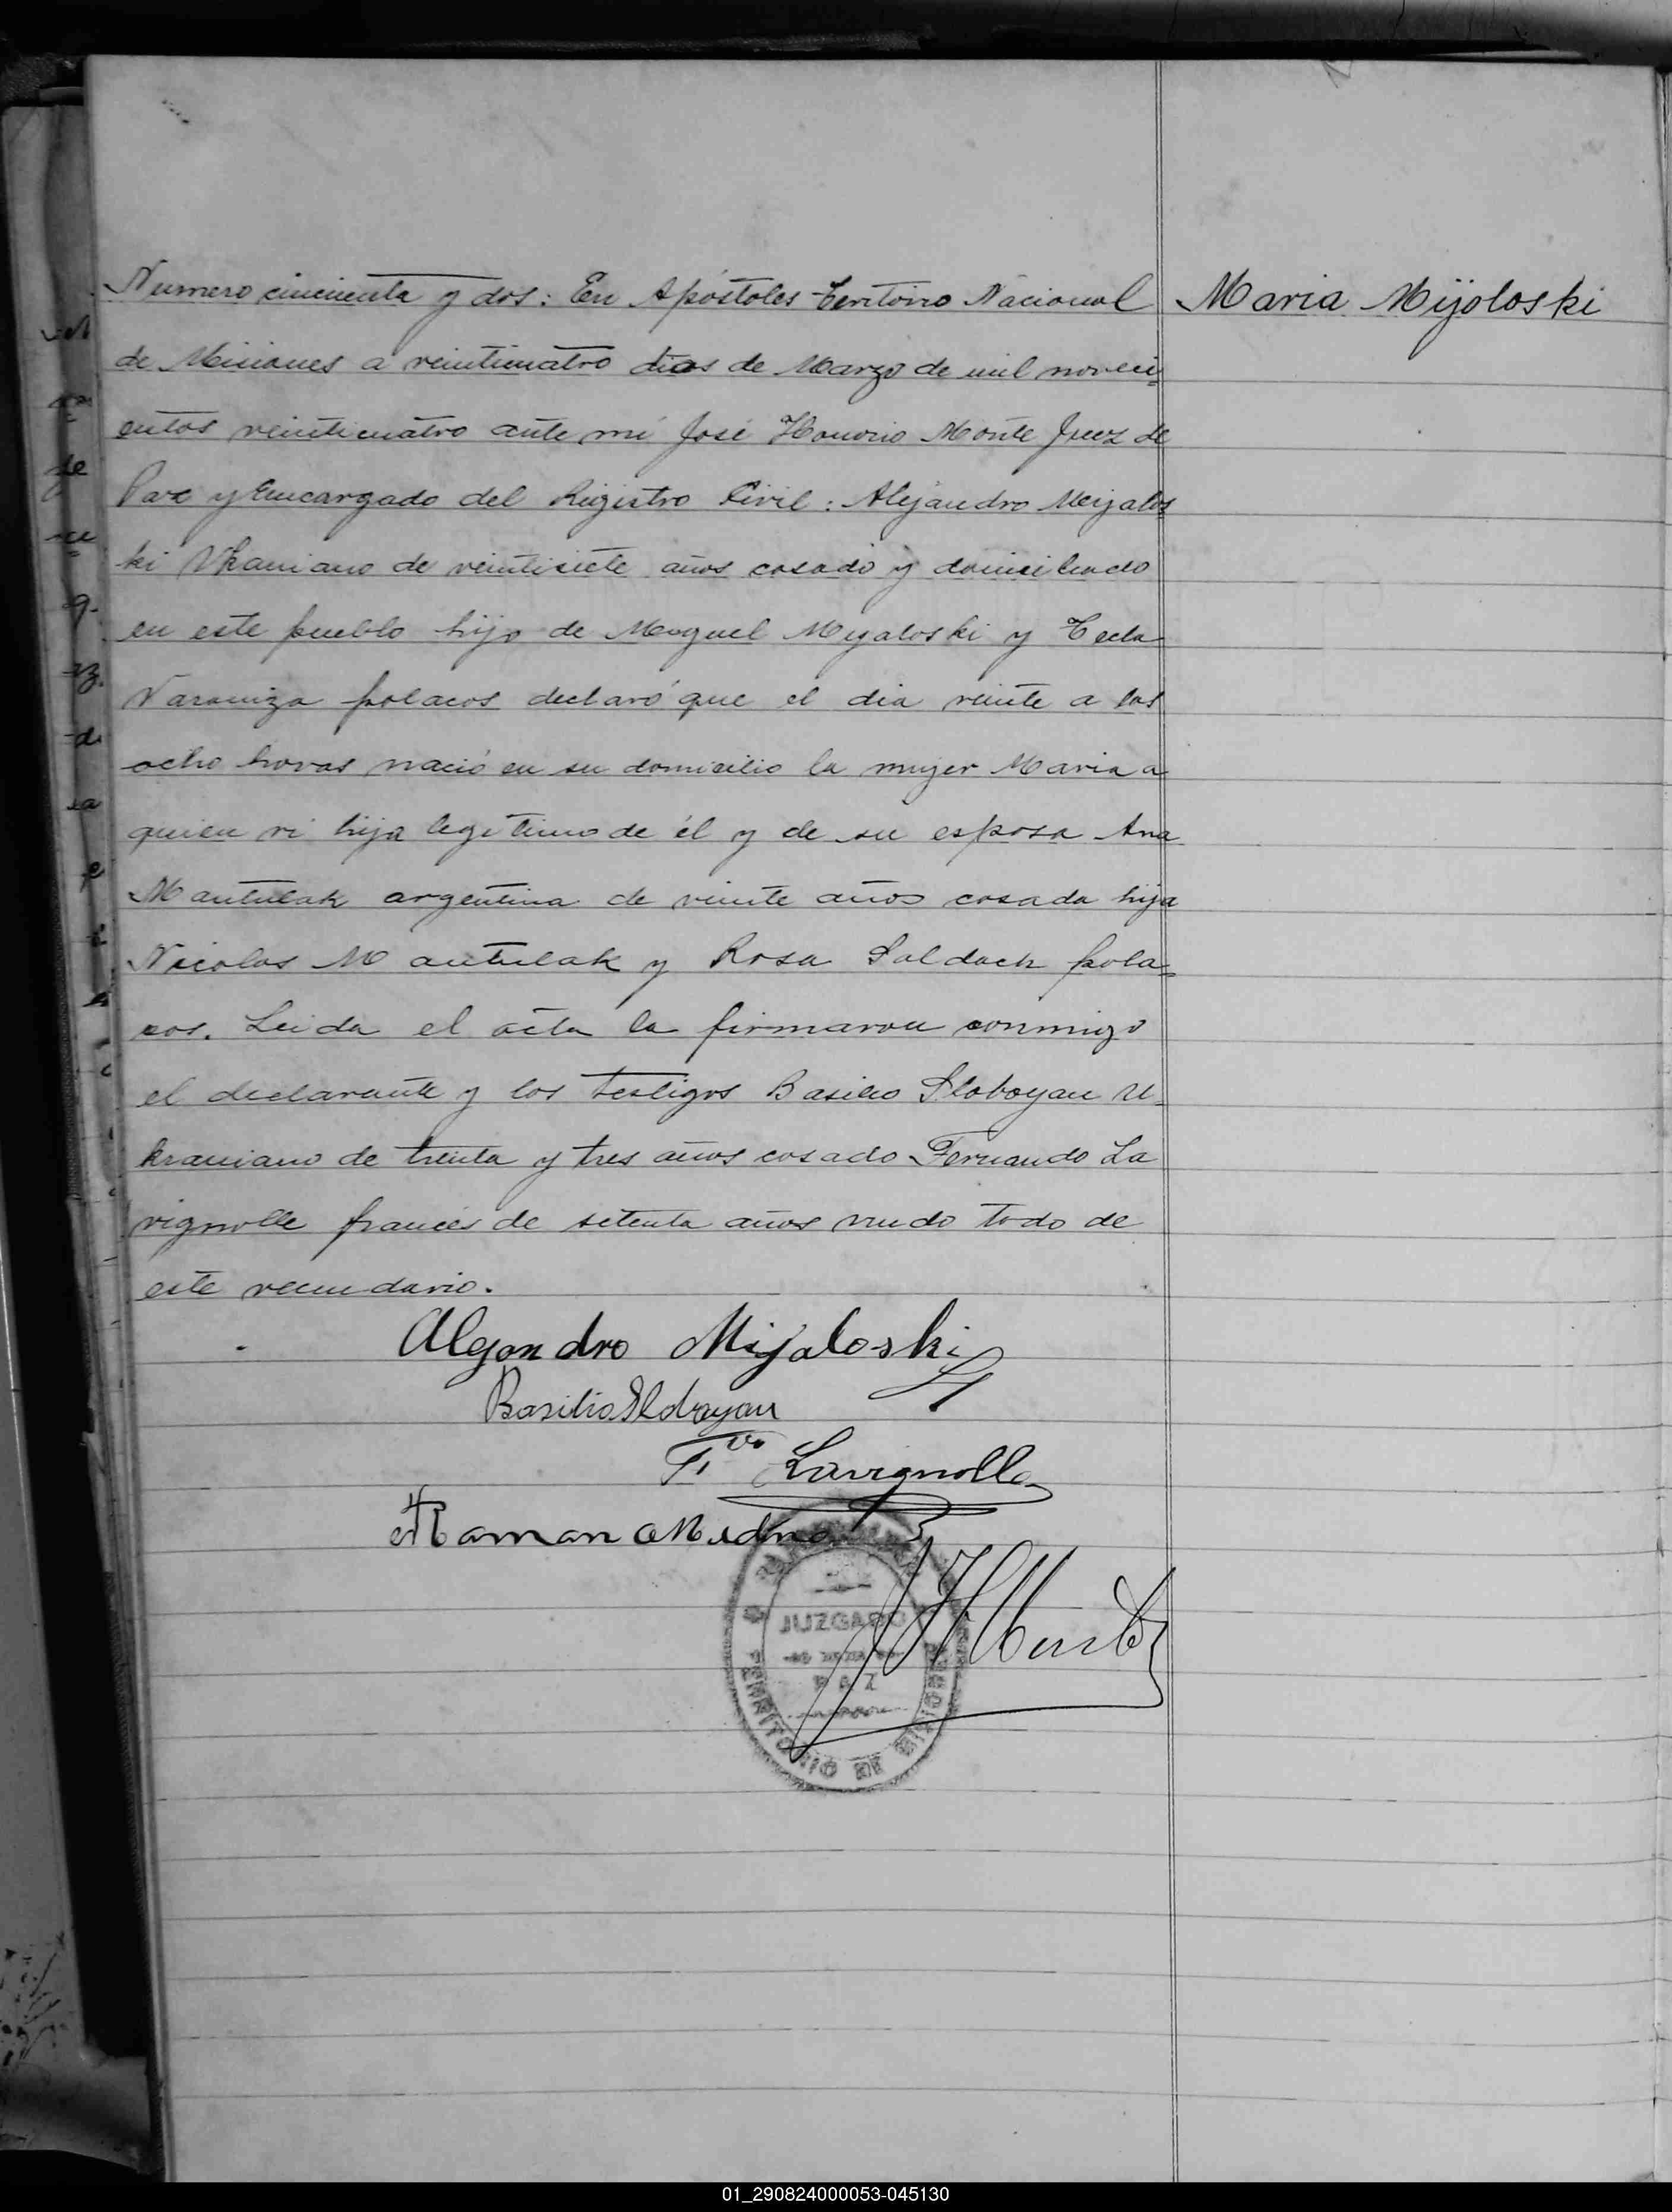 Numero cincuenta y dos: En Apóstoles Territoiro Nacional
Maria Mijoloski
de Misiones a veinticuatro dias de Marzo de mil noveci=
entos veinticuatro ante mi José Honorio Monte Juez de
Paz y Encargado del Registro Civil: Alejandro Mijalos
ki Ukraniano de veintisiete años casado y domiciliado
en este pueblo hijo de Miguel Myaloski y Tecla
polacos declaró que el dia veinte a las
ocho horas nació en su domicilio la mujer Maria a
quien vi hija legitima de él y de su esposa Ana
Mantulak argentina de veinte años casada hija
Nicolas Mantulak y Rosa Saldach pola=
cos. Leida el acta la firmaron conmigo
el declarante y los testigos Basilio Sloboyan U=
kraniano de trenta y tres años casado Fernando La
vignolle francés de setenta años viudo todo de
este vecindario.
Alejandro Mijaloski
Basilio Sloboyan
F. Lavignolle
Raman Medina
JHMonte
JUZGADO
DE
PAZ
TERRITORIO DE MISIONES
01_290824000053-045130